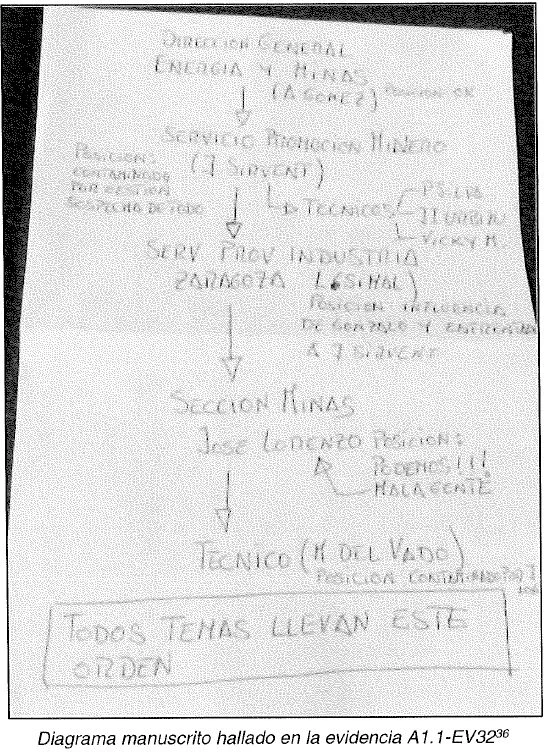 DIRECCION GENERAL
ENERGIA Y MINAS
(A GOMEZ) POSICION OK
SERVICIO PROMOCION MINERO
(J SIRVENT)
POSICION:
CONTAMINADO
POR GESTION
SOSPECHO DE TODO
TECNICOS
VICKY M.
SERV PROV INDUSTRIA
ZARAGOZA L. SIMAL)
POSICION INFLUENCIA
DE GONZALO Y
A J SIRVENT
SECCION MINAS
JOSE LORENZO POSICION:
PODEMOS!!!
MALA GENTE
TECNICO (M DEL VADO)
POSICION
TODOS TEMAS LLEVAN ESTE
ORDEN
Diagrama manuscrito hallado en la evidencia A1.1-EV32³⁶